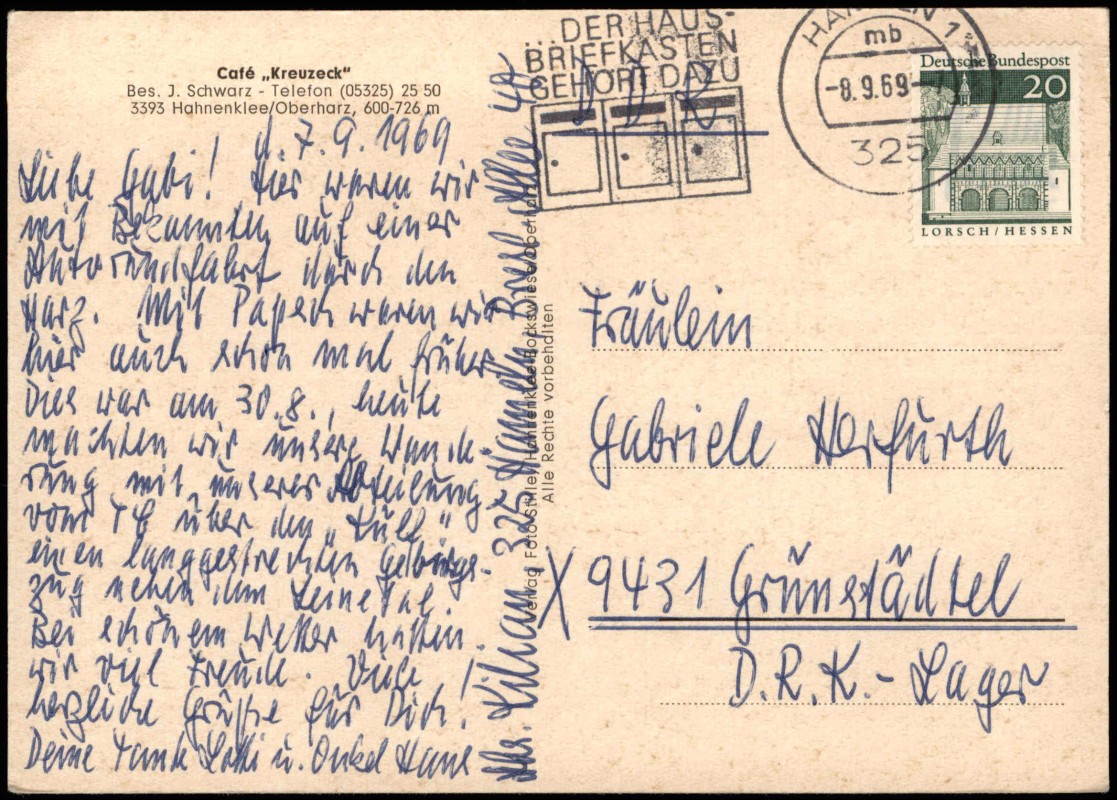 Café „Kreuzeck"
Bes. J. Schwarz - Telefon (05325) 25 50
3393 Hahnenklee/Oberharz, 600-726 m
d. 7. 9. 1969
Liebe Gabi! Hier waren wir
mit Bekannten auf einer
Autorundfahrt durch den
Harz. Mit Papa waren wir
hier auch schon mal früher
Dies war am 30.8., heute
machten wir unsere Wande-
rung mit unserer Abteilung
vom über den
einen langgestreckten Gebirgs-
zug neben dem Leinetal.
Bei schönem Wetter hatten
wir viel Freude. Viele
herzliche Grüße für Dich!
Deine Tante Lotti u. Onkel Hans
Abs. 325 Hameln, Allee 48
Verlag: Foto Hahnenklee-Bockswiese/Oberharz
Alle Rechte vorbehalten
...DER HAUS-
BRIEFKASTEN
GEHÖRT DAZU
DDR
HAMELN 1
mb
-8.9.69-
325
Deutsche Bundespost
20
LORSCH/HESSEN
Fräulein
Gabriele Herfurth
X 9431 Grünstädtel
D.R.K.-Lager